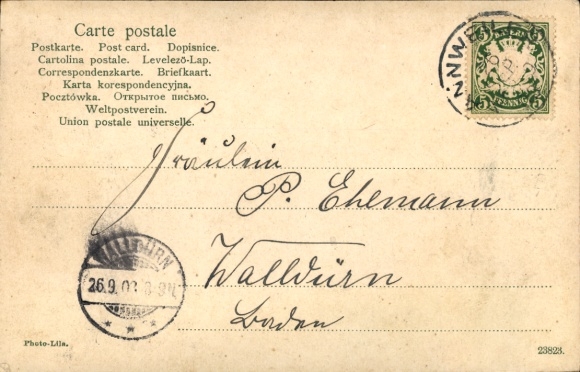 Carte postale
Postkarte. Post card. Dopisnice.
Cartolina postale. Levelező-Lap.
Correspondenzkarte. Briefkaart.
Karta korespondencyjna.
Pocztówka. Открытое письмо.
Weltpostverein.
Union postale universelle.
BAYERN
5 5
5 PFENNIG 5
Fräulein
P. Ehemann
Walldürn
Baden
WALLDÜRN
26.9.03
Photo-Lila.
23823.